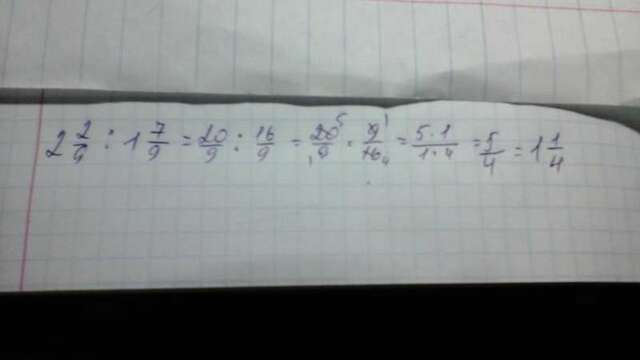 2 2/9 : 1 7/9 = 20/9 : 16/9 = 20⁵/₁9 · 9¹/16₄ = 5·1/1·4 = 5/4 = 1 1/4